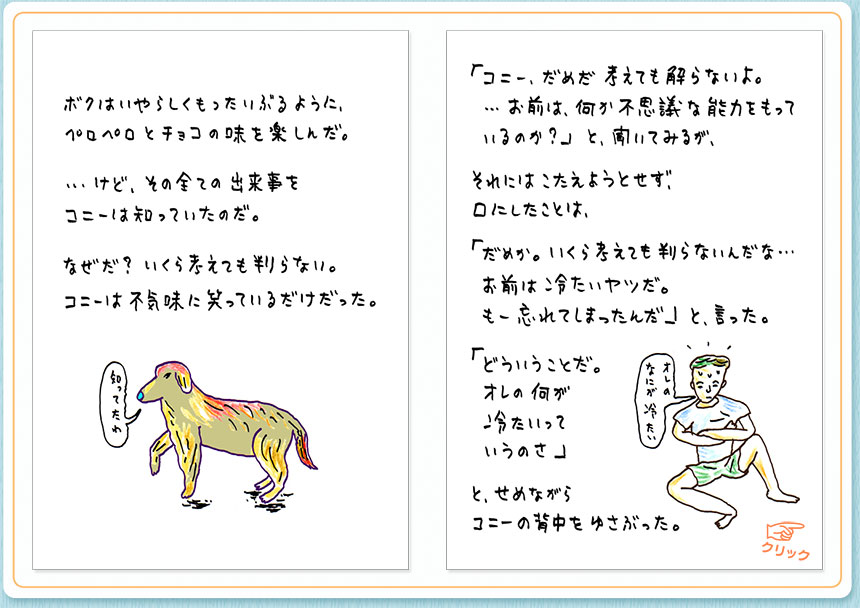 ボクはいやらしくもったいぶるように、
ペロペロとチョコの味を楽しんだ。
…けど、その全ての出来事を
コニーは知っていたのだ。
なぜだ？いくら考えても判らない。
コニーは不気味に笑っているだけだった。
知ってたわ
「コニー、だめだ考えても解らないよ。
…お前は、何か不思議な能力をもって
いるのか？」と、聞いてみるが、
それにはこたえようとせず、
口にしたことは、
「だめか。いくら考えても判らないんだな…
お前は冷たいヤツだ。
もー忘れてしまったんだ」と、言った。
「どういうことだ。
オレの何が
冷たいって
いうのさ」
オレの
なにが冷たい
と、せめながら
コニーの背中をゆさぶった。
クリック